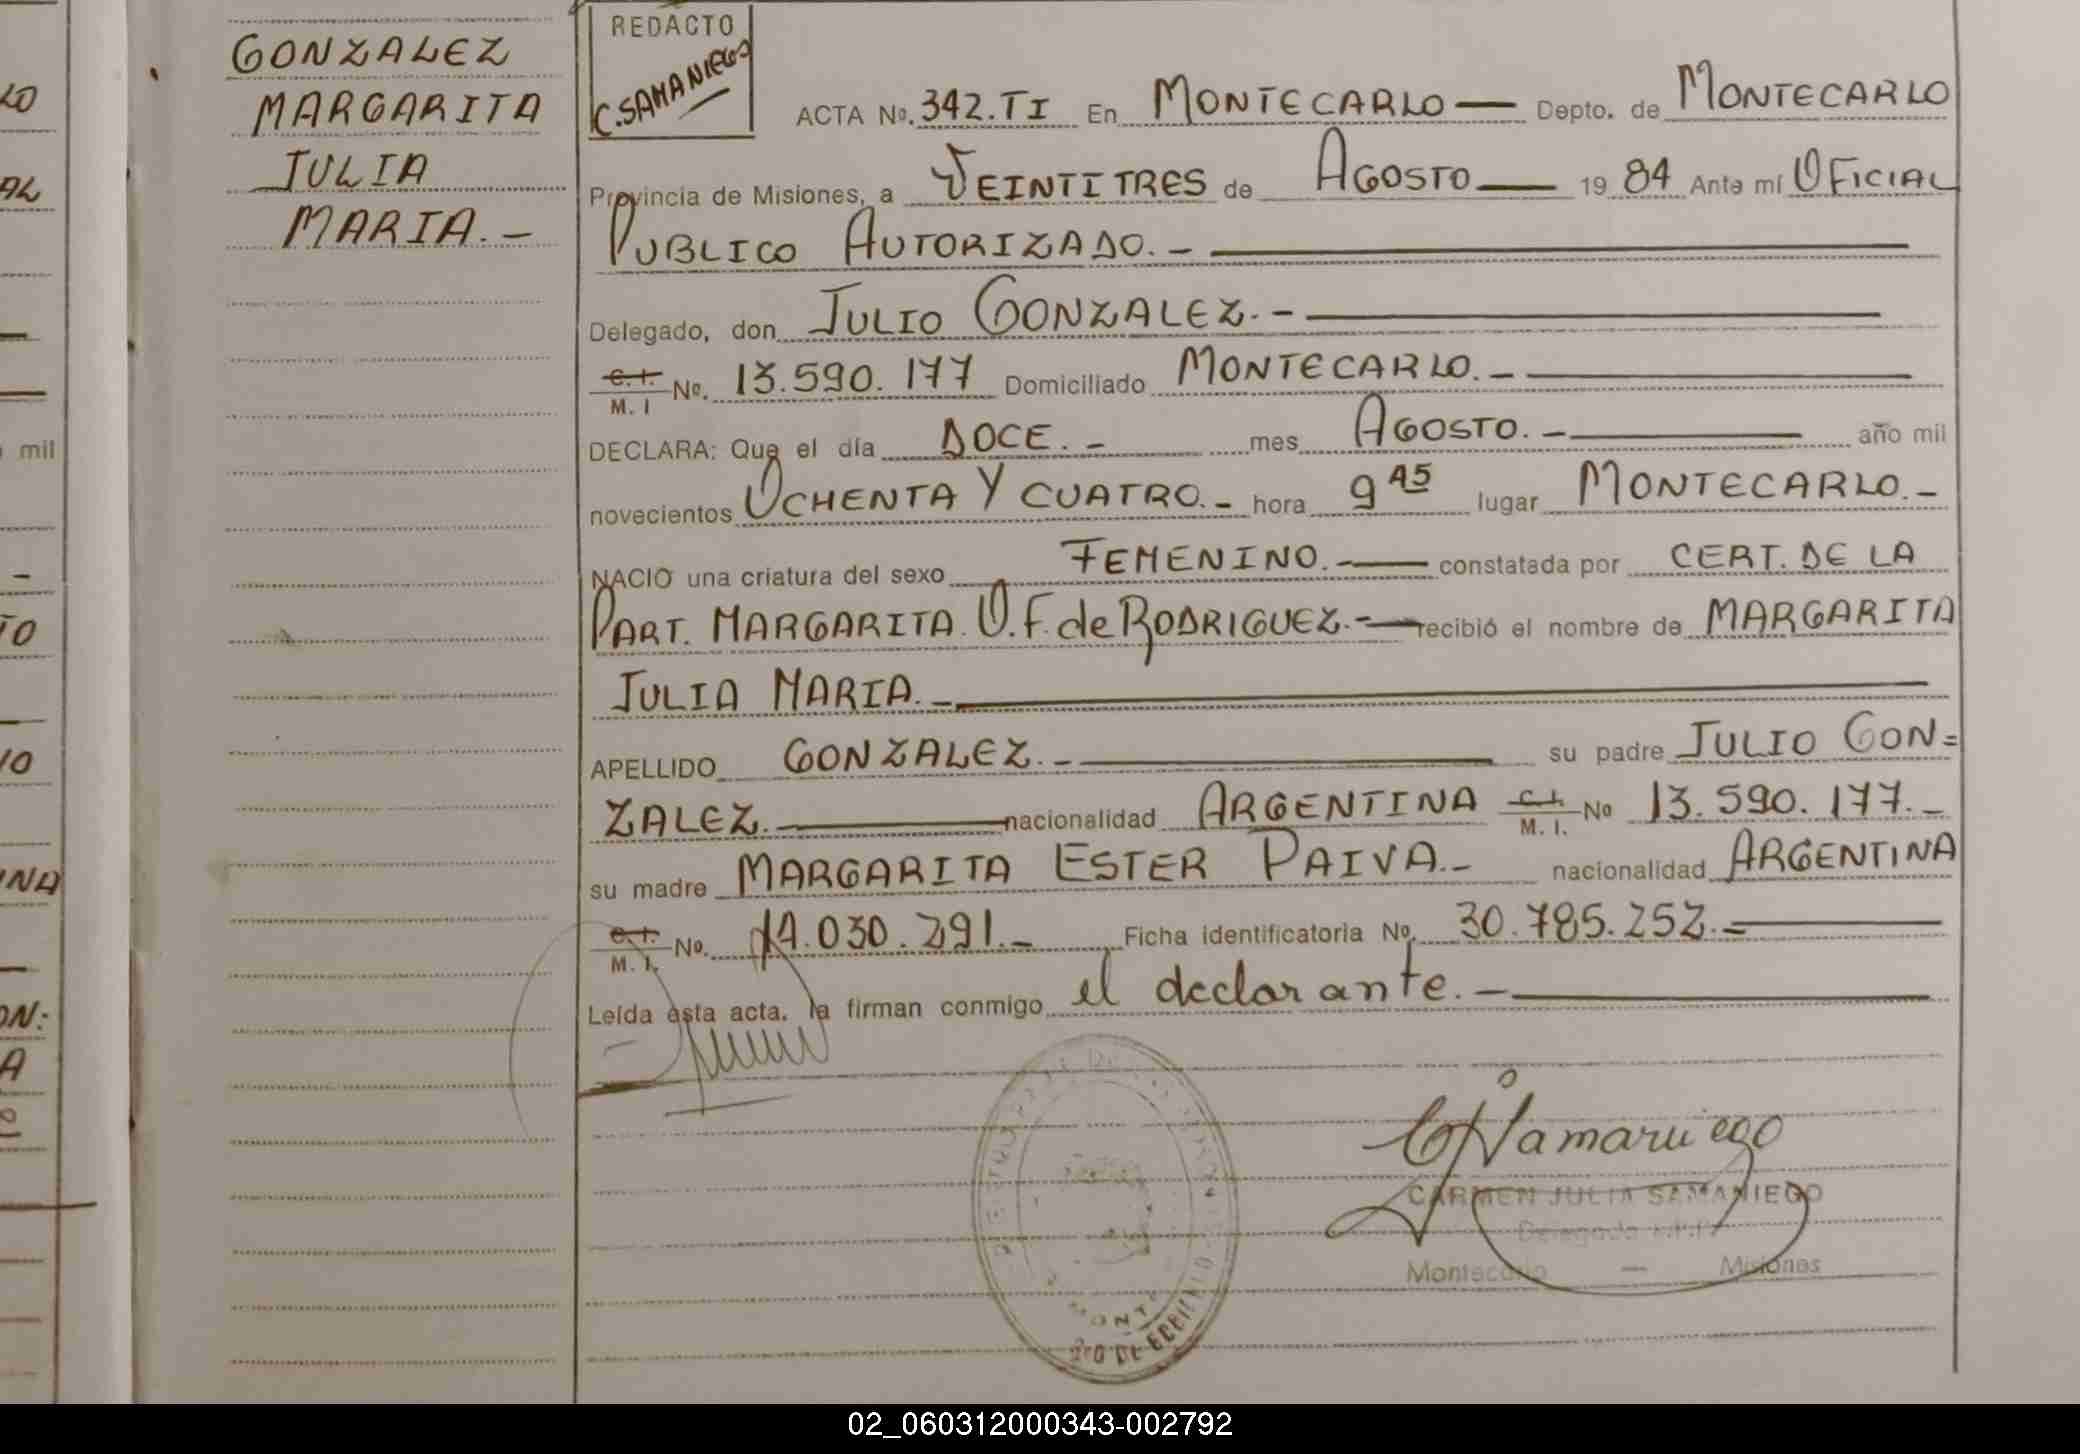 GONZALEZ
MARGARITA
JULIA
MARIA.-
REDACTO
C. SAMANIEGO
ACTA No. 342.TI En MONTECARLO— Depto. de MONTECARLO
Provincia de Misiones, a VEINTITRES de AGOSTO— 19 84 Ante mí OFICIAL
PUBLICO AUTORIZADO.-
Delegado, don JULIO GONZALEZ.-
C. I.
M. I
No. 13.590.177 Domiciliado MONTECARLO.-
DECLARA: Que el día DOCE.- mes AGOSTO.- año mil
novecientos OCHENTA Y CUATRO.- hora 9 45 lugar MONTECARLO.-
NACIO una criatura del sexo FEMENINO.- constatada por CERT. DE LA
PART. MARGARITA. O.F. de RODRIGUEZ.- recibió el nombre de MARGARITA
JULIA MARIA.-
APELLIDO GONZALEZ.- su padre JULIO GON=
ZALEZ.- nacionalidad ARGENTINA C. I. M. I. No 13.590.177.-
su madre MARGARITA ESTER PAIVA.- nacionalidad ARGENTINA
C. I.
M. I.
No. 14.030.291.- Ficha identificatoria No. 30.785.252.-
Leída esta acta, la firman conmigo el declarante.-
CJSamaniego
CARMEN JULIA SAMANIEGO
Delegada
Montecarlo — Misiones
LO
AL
mil
TO
NO
INA
ON:
A
02_060312000343-002792